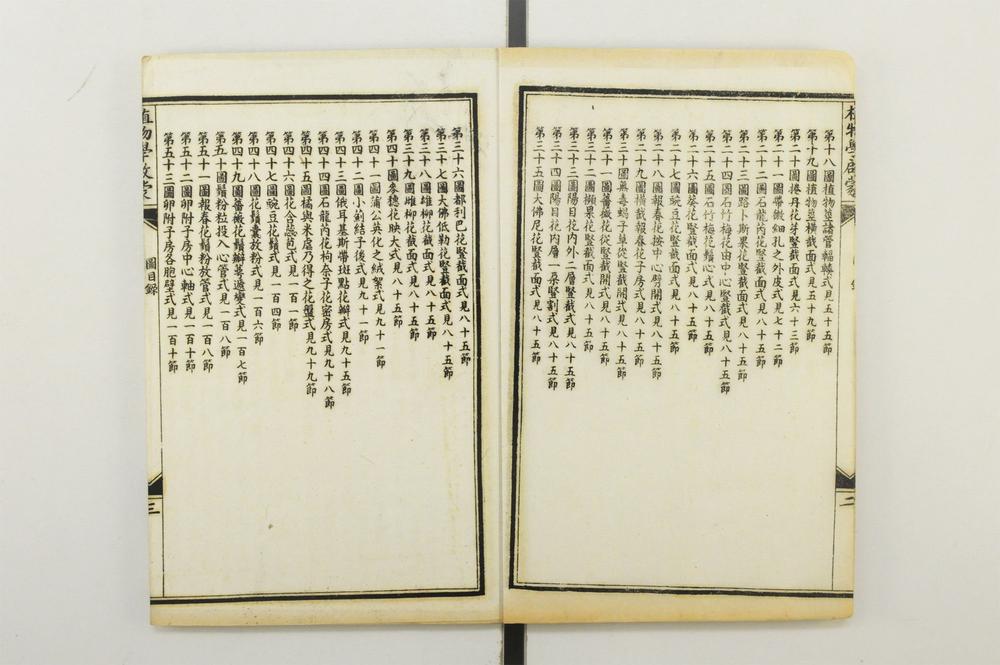 植物學啟蒙
二
第十八圖植物莖諸管輻轃式見五十五節
第十九圖植物莖橫截面式見五十九節
第二十圖捲丹花芽豎截面式見六十三節
第二十一圖帶微細孔之外皮式見七十二節
第二十二圖石龍芮花豎截面式見八十五節
第二十三圖路卜斯果花豎截面式見八十五節
第二十四圖石竹梅花由中心豎截式見八十五節
第二十五圖石竹梅花鬚心式見八十五節
第二十六圖葵花豎截面式見八十五節
第二十七圖豌豆花豎截面式見八十五節
第二十八圖報春花按中心劈開式見八十五節
第二十九圖橫截報春花子房式見八十五節
第三十圖無毒蝎子草從豎截開式見八十五節
第三十一圖薔薇花從豎截開式見八十五節
第三十二圖蘋果花豎截面式見八十五節
第三十三圖陽目花內外二層豎截式見八十五節
第三十四圖陽目花內層一朶豎割式見八十五節
第三十五圖大佛尼花豎截面式見八十五節
第三十六圖都利巴花豎截面式見八十五節
第三十七圖大佛低勒花豎截面式見八十五節
第三十八圖雄柳花截面式見八十五節
第三十九圖雌柳花截面式見八十五節
第四十圖麥穗花映大式見八十五節
第四十一圖蒲公英化之絨絮式見九十一節
第四十二圖小薊結子後式見九十一節
第四十三圖俄耳基斯帶斑點花瓣式見九十五節
第四十四圖石龍芮花枸奈子花密房式見九十八節
第四十五圖橘與米虐乃得之花盤式見九十九節
第四十六圖花含蕊苞式見一百一節
第四十七圖豌豆花鬚式見一百四節
第四十八圖花鬚囊放粉式見一百六節
第四十九圖薔薇花鬚瓣萼遞變式見一百七節
第五十圖鬚粉粒投入心管式見一百八節
第五十一圖報春花鬚粉放管式見一百八節
第五十二圖卵附子房中心軸式見一百十節
第五十三圖卵附子房各胞壁式見一百十節
植物學啟蒙
圖目錄
三